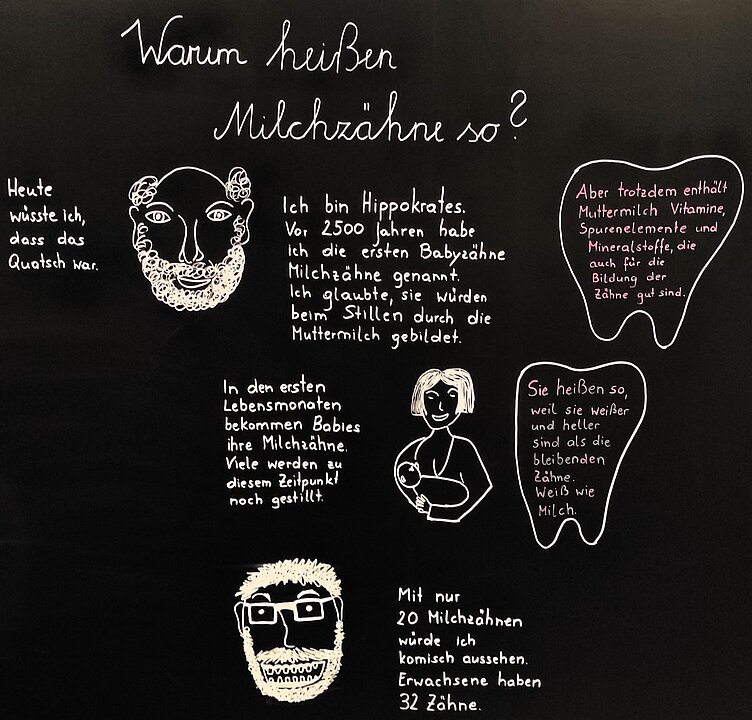 Warum heißen
Milchzähne so?
Heute
wüsste ich,
dass das
Quatsch war.
Ich bin Hippokrates.
Vor 2500 Jahren habe
ich die ersten Babyzähne
Milchzähne genannt.
Ich glaubte, sie würden
beim Stillen durch die
Muttermilch gebildet.
Aber trotzdem enthält
Muttermilch Vitamine,
Spurenelemente und
Mineralstoffe, die
auch für die
Bildung der
Zähne gut sind.
In den ersten
Lebensmonaten
bekommen Babies
ihre Milchzähne.
Viele werden zu
diesem Zeitpunkt
noch gestillt.
Sie heißen so,
weil sie weißer
und heller
sind als die
bleibenden
Zähne.
Weiß wie
Milch.
Mit nur
20 Milchzähnen
würde ich
komisch aussehen.
Erwachsene haben
32 Zähne.